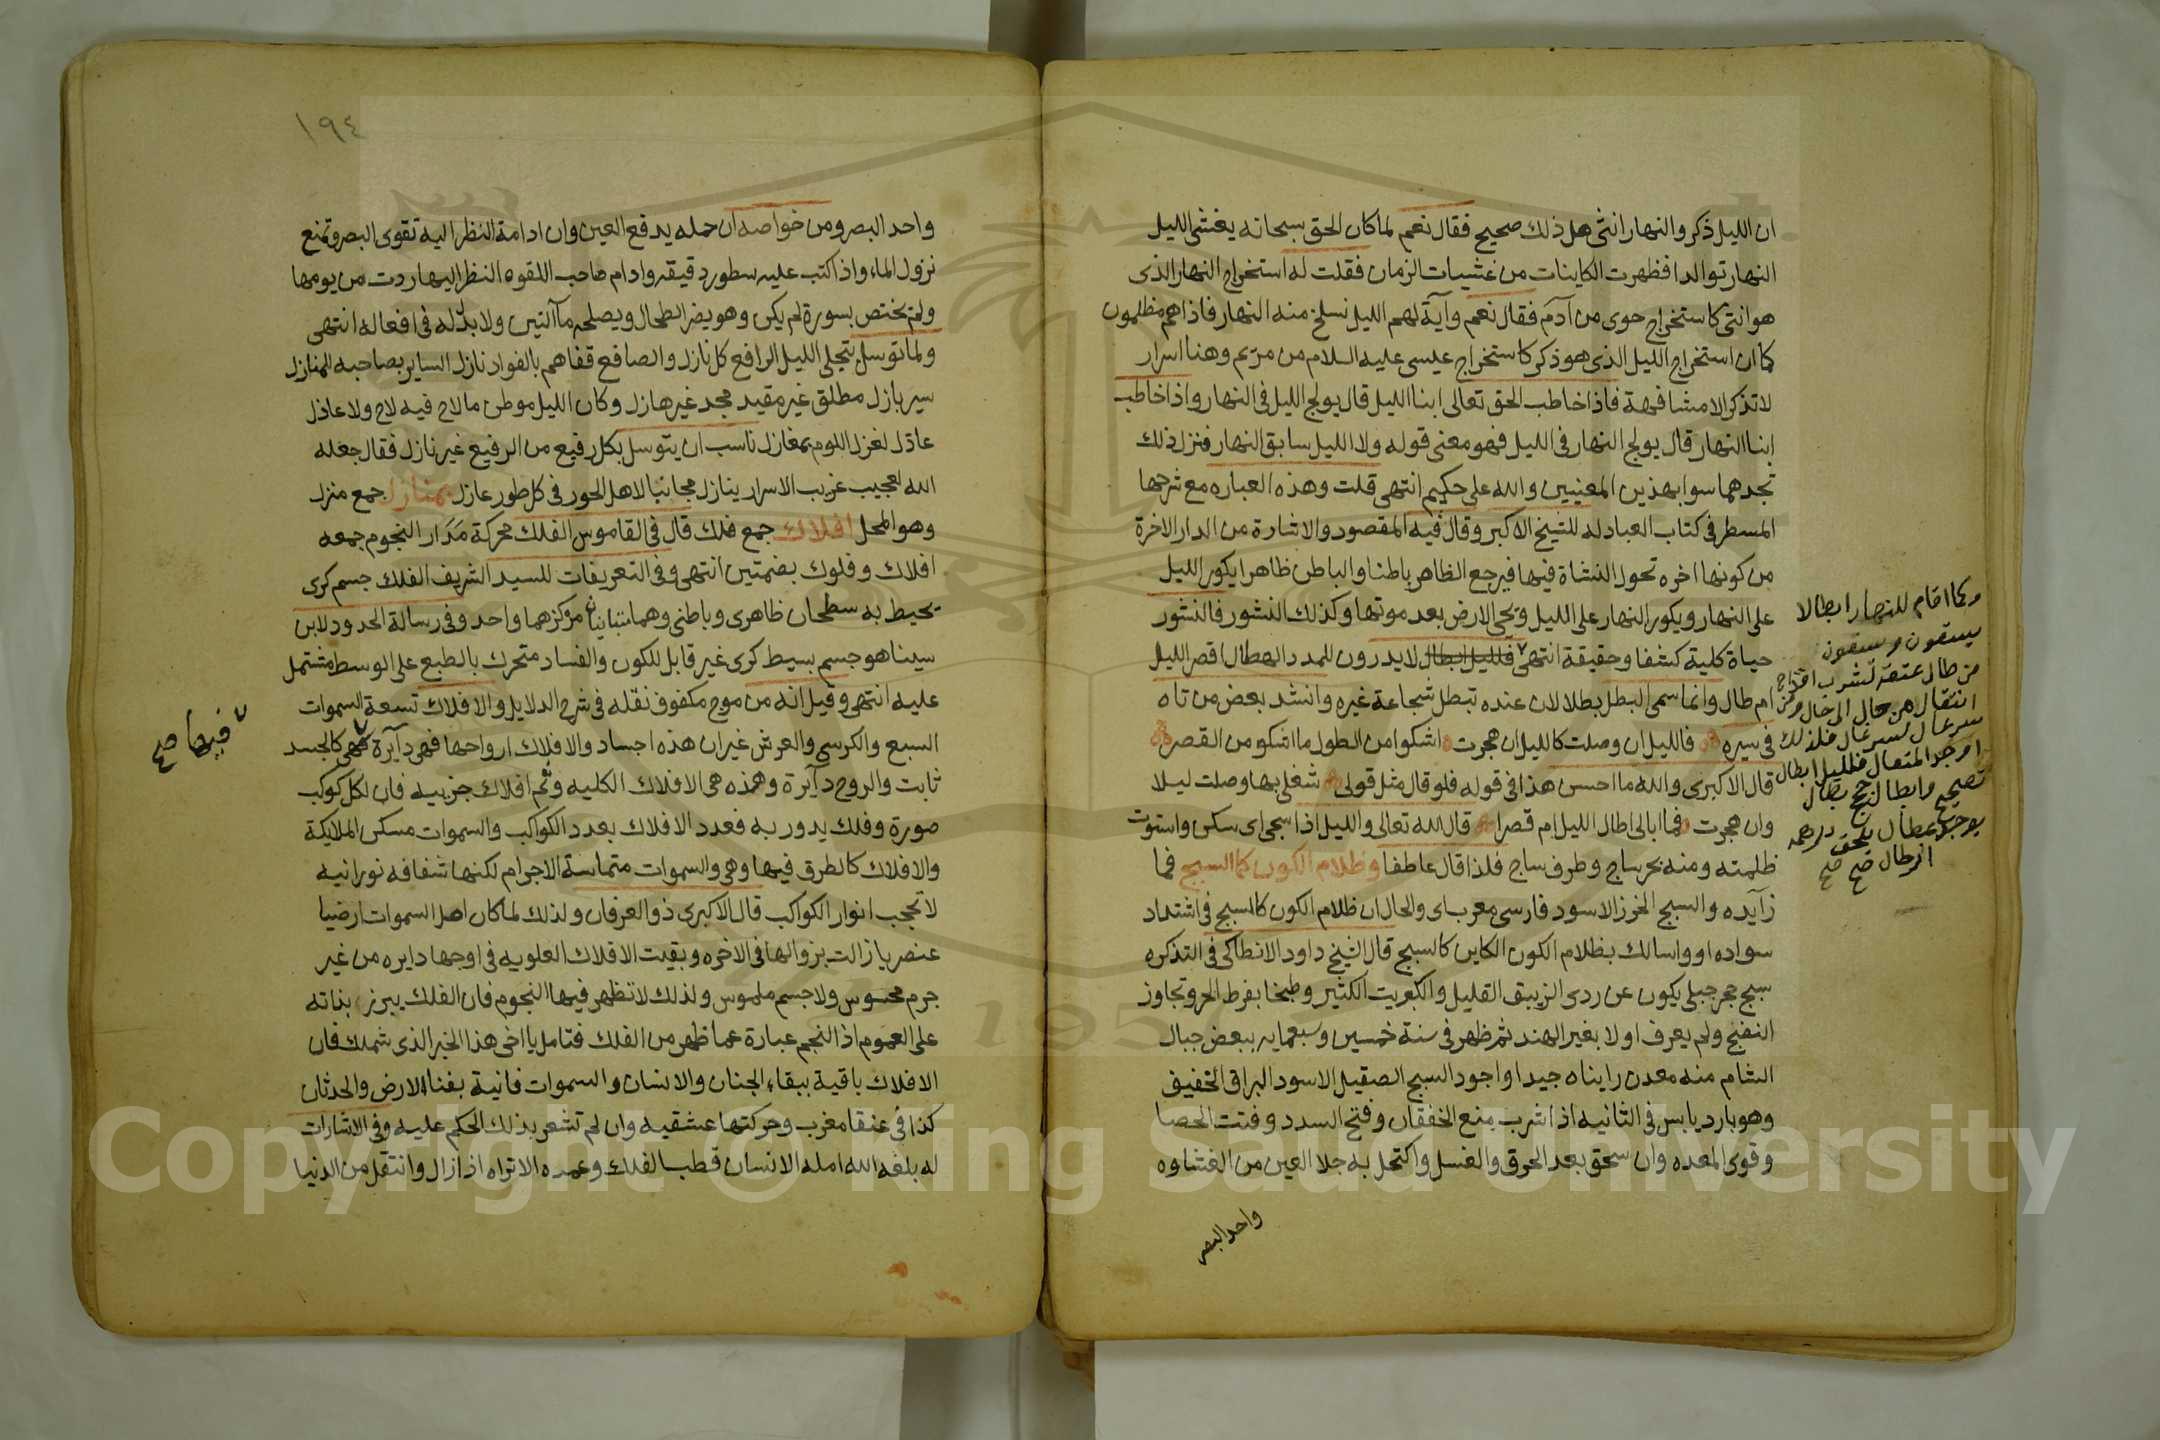 ان الليل ذكر والنهار انثى هل ذلك صحيح فقال نعم لما كان الحق سبحانه يغشى الليل
النهار توالدا فظهرت الكاينات من غشيات الزمان فقلت له استخراج النهار الذى
هو انثى كاستخراج حوى من آدم فقال نعم وآية لهم الليل نسلخ منه النهار فاذا هم مظلمون
كما ان استخراج الليل الذى هو ذكر كاستخراج عيسى عليه السلام من مريم وهنا اسرار
لا تذكر الا مشافهة فاذا خاطب الحق تعالى ابنا الليل قال يولج الليل فى النهار واذا خاطب
ابنا النهار قال يولج النهار فى الليل فهو معنى قوله ولا الليل سابق النهار فنزل ذلك
تجدهما سوا بهذين المعنيين والله على حكيم انتهى قلت وهذه العباره مع شرحها
المسطر فى كتاب العبادله للشيخ الاكبر وقال فيه المقصود والاشارة من الدار الاخرة
من كونها اخره تحول النشاة فيها فيرجع الظاهر باطنا والباطن ظاهرا يكور الليل
على النهار ويكور النهار على الليل ويحى الارض بعد موتها وكذلك النشور فالنشور
حياة كلية كشفا وحقيقة انتهى فلليل ابطال لا يدرون للمدد الهطال اقصر الليل
ام طال وانما سمى البطل بطلا لان عنده تبطل شجاعة غيره وانشد بعض من تاه
فى سيره فالليل ان وصلت كالليل ان هجرت اشكوا من الطول ما اشكو من القصر
قال الاكبرى والله ما احسن هذا فى قوله فلو قال مثل قولى شغلى بها وصلت ليلا
وان هجرت فما ابالى اطال الليل ام قصرا قال الله تعالى والليل اذا سجى اى سكن واستوت
ظلمته ومنه بحر ساج وطرف ساج فلذا قال عاطفا وظلام الكون كما السبج فما
زآيده والسبج الخرز الاسود فارسى معرب اى والحال ان ظلام الكون كالسبج فى اشتداد
سواده او واسالك بظلام الكون الكاين كالسبج قال الشيخ داود الانطاكى فى التذكره
سبج حجر جبلى يكون عن ردى الزيبق القليل والكبريت الكثير وطبخا بفرط الحر وتجاوز
النضج ولم يعرف اولا بغير الهند ثم ظهر فى سنة خمسين وسبعمايه ببعض جبال
الشام منه معدن رايناه جيدا واجود السبج الصقيل الاسود البراق الخفيف
وهو بارد يابس فى الثانيه اذا شرب منع الخفقان وفتح السدد وفتت الحصا
وقوى المعده وان سحق بعد الحرق والغسل واكتحل به جلا العين من الغشاوه
واحد البصر
وكما اقام للنهار ابطالا
يسقون ويسقون
من طال عتقه لشرب اقداح
انتقال من حال الى حال ومن
فلذلك
المتعال فلليل ابطال
تصحيح وابطال
صح صح
١٩٤
واحد البصر ومن خواصه ان حمله يدفع العين وان ادامة النظر اليه تقوى البصر وتمنع
نزول الماء واذا كتب عليه سطور دقيقه وادام صاحب اللقوه النظر اليها ردت من يومها
ولم يختص بسورة لم يكن وهو يضر الطحال ويصلحه ماآلتين ولا بدله فى افعاله انتهى
ولما توسل بتجلى الليل الرافع كل نازل والصافع قفاهم بالفواد نازل الساير بصاحبه المنازل
سير بازل مطلق غير مقيد مجد غير هازل وكان الليل موطن ما لاح فيه لاح ولا عاذل
عاذل لغزل اللوم بمغازل ناسب ان يتوسل بكل رفيع من الرفيع غير نازل فقال جعله
الله لعجيب غريب الاسرار ينازل مجانبا لاهل الحور فى كل طور عازل بمنازل جمع منزل
وهو المحل افلاك جمع فلك قال فى القاموس الفلك محركة مدار النجوم جمعه
افلاك وفلوك بضمتين انتهى وفى التعريفات للسيد الشريف الفلك جسم كرى
يحيط به سطحان ظاهرى وباطنى وهما متباينان مركزهما واحد وفى رسالة الحدود لابن
سينا هو جسم بسيط كرى غير قابل للكون والفساد متحرك بالطبع على الوسط مشتمل
عليه انتهى وقيل انه من موج مكفوف نقله فى شرح الدلايل والافلاك تسعة السموات
السبع والكرسى والعرش غير ان هذه اجساد والافلاك ارواحها فهى دآيرة فهى كالجسد
فيها صح
ثابت والروح دآيرة وهذه هى الافلاك الكليه وثم افلاك جزييه فان لكل كوكب
صورة وفلك يدور به فعدد الافلاك بعدد الكواكب والسموات مسكن الملايكة
والافلاك كالطرق فيها وهى والسموات متماسة الاجرام لكنها شفافه نورانيه
لا تحجب انوار الكواكب قال الاكبرى ذو العرفان ولذلك لما كان اصل السموات ارضيا
عنصريا زالت بزوالها فى الاخره وبقيت الافلاك العلويه فى اوجها دايره من غير
جرم محسوس ولا جسم ملموس ولذلك لا تظهر فيها النجوم فان الفلك يبرز بذاته
على العموم اذ النجم عبارة عما ظهر من الفلك فتامل يا اخى هذا الخبر الذى شملك فان
الافلاك باقية ببقاء الجنان والانسان والسموات فانية بفنا الارض والحدثان
كذا فى عنقا مغرب وحركتها عشقيه وان لم تشعر بذلك الحكم عليه وفى الاشارات
له بلغه الله امله الانسان قطب الفلك وعمده الا تراه اذا زال وانتقل من الدنيا
Copyright © King Saud University
1957